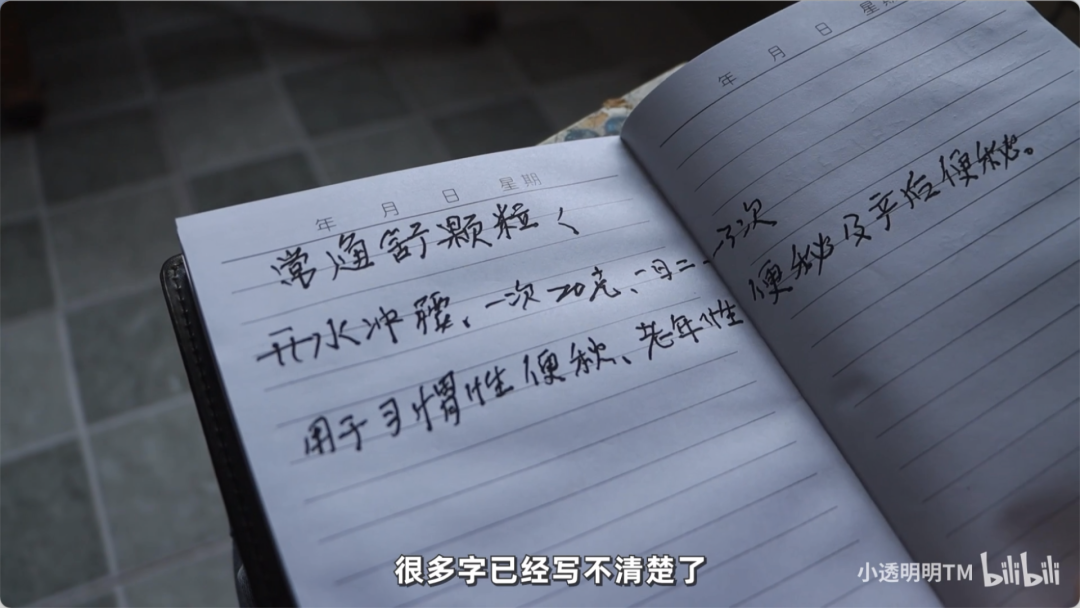 年 月 日 星期
年 月 日 星期
常通舒颗粒
开水冲服、一次20克、一日二-3次
用于习惯性便秘、老年性便秘及产后便秘。
很多字已经写不清楚了
小透明明TM bilibili